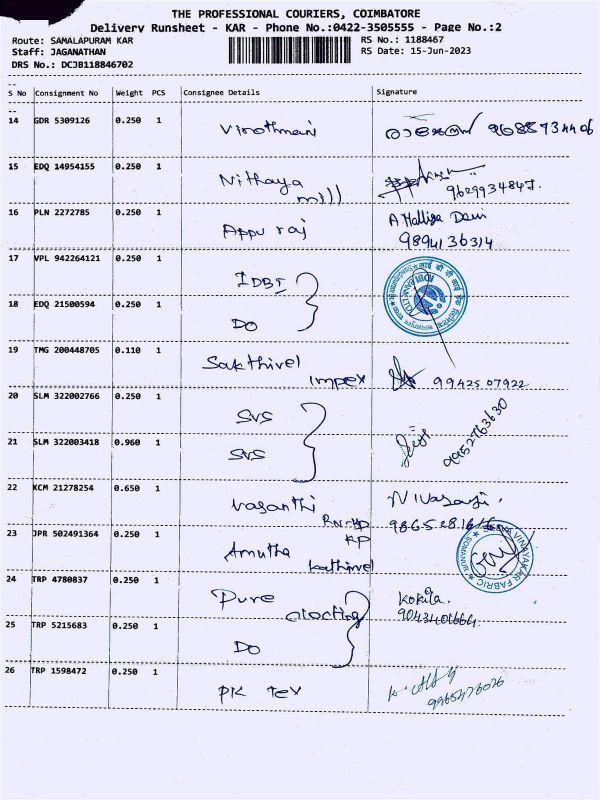 THE PROFESSIONAL COURIERS, COIMBATORE
Delivery Runsheet - KAR - Phone No.:0422-3505555 - Page No.:2
Route: SAMALAPURAM KAR RS No.: 1188467
Staff: JAGANATHAN RS Date: 15-Jun-2023
DRS No.: DCJB118846702
S No Consignment No Weight PCS Consignee Details Signature
14 GDR 5309126 0.250 1 Virothmani
15 EDQ 14954155 0.250 1 Nithaya
mill 9629934847.
16 PLN 2272785 0.250 1 Appu raj A Malliga Devi
9894136314
17 VPL 942264121 0.250 1 IDBI
18 EDQ 21500594 0.250 1 DO
19 TMG 200448705 0.110 1 Sakthivel
impex 99425 07922
20 SLM 322002766 0.250 1 SVS
21 SLM 322003418 0.960 1 SVS 9952763630
22 KCM 21278254 0.650 1 Vasanthi
23 JPR 502491364 0.250 1 Amutha
Kathirvel
VINAYAKAR FABRIC
SOMANUR
24 TRP 4780837 0.250 1 Pure Kokila.
25 TRP 5215683 0.250 1 DO
26 TRP 1598472 0.250 1 PK Tex